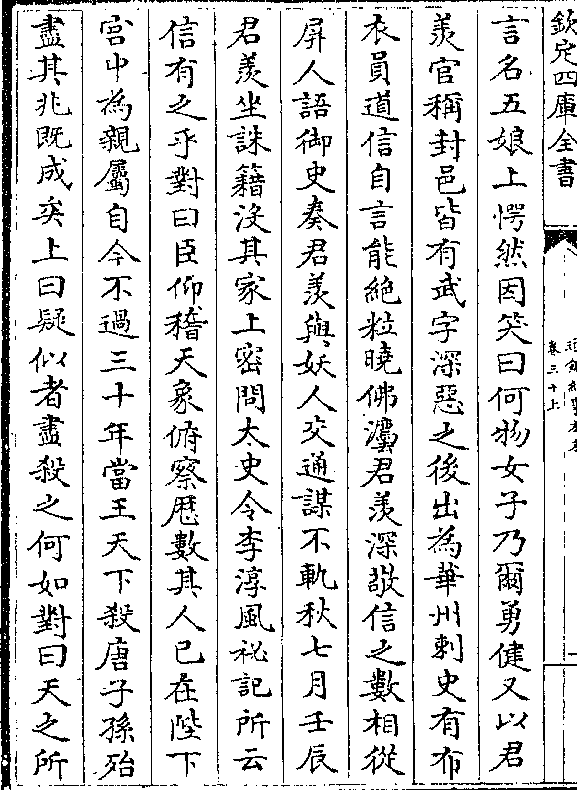 欽定四庫全書
卷三十上
言名五娘上愕然因笑曰何物女子乃爾勇健又以君
羡官稱封邑皆有武字深惡之後出為華州刺史有布
衣員道信自言能絶粒曉佛灋君羡深敬信之數相從
屏人語御史奏君羡與妖人交通謀不軌秋七月壬辰
君羡坐誅籍沒其家上密問太史令李淳風祕記所云
信有之乎對曰臣仰稽天象俯察厯數其人已在陛下
宫中為親屬自今不過三十年當王天下殺唐子孫殆
盡其兆既成矣上曰疑似者盡殺之何如對曰天之所